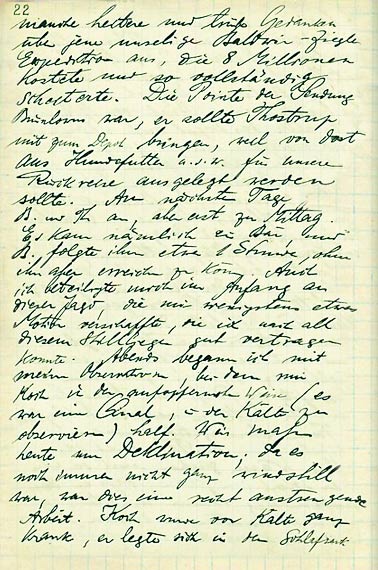 22
manche heitere und trübe Gedanken
über jene unselige Baldwin-Ziegler
Expedition aus, die 8 Millionen
kostete und so vollständig
scheiterte. Die Pointe der Sendung
war, er sollte Thostrup
mit zum Depot bringen, weil von dort
aus Hundefutter u.s.w. für unsere
Rückreise ausgelegt werden
sollte. Am nächsten Tage
B. und Th an, aber erst zu Mittag.
Es kam nämlich ein Bär und
B. folgte ihm etwa 1 Stunde, ohne
ihn aber erreichen zu könn. Auch
ich beteiligte mich im Anfang an
dieser Jagd, die mir wenigstens etwas
Motion verschaffte, die ich nach all
diesem Stillliegen gut vertragen
konnte. Abends begann ich mit
meinen Observation, bei dem mir
Koch in der aufopfernsten Weise (es
war eine Qual, in der Kälte zu
observieren) half. Wir maßen
heute nur Deklination, da es
noch immer nicht ganz windstill
war, war dies eine recht anstrengende
Arbeit. Koch wurde vor Kälte ganz
krank, er legte sich in den Schlafsack